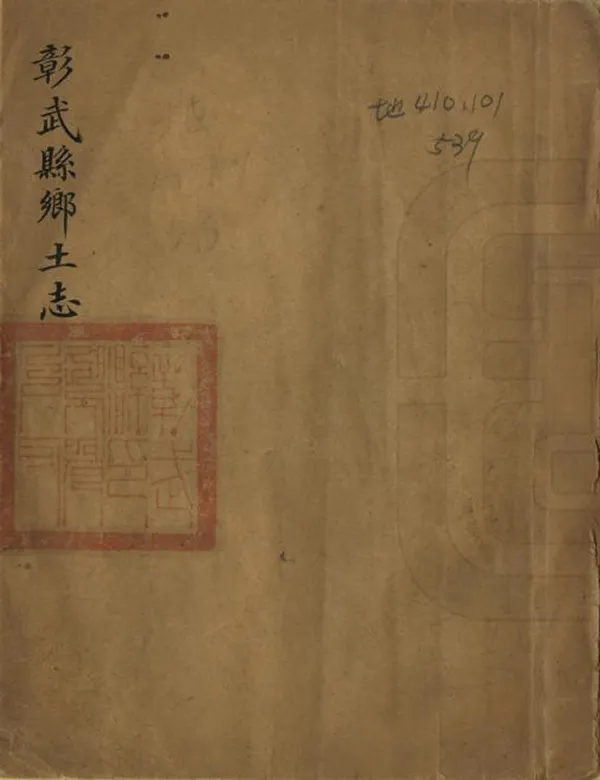 彰武縣鄉土志
地410.101
539